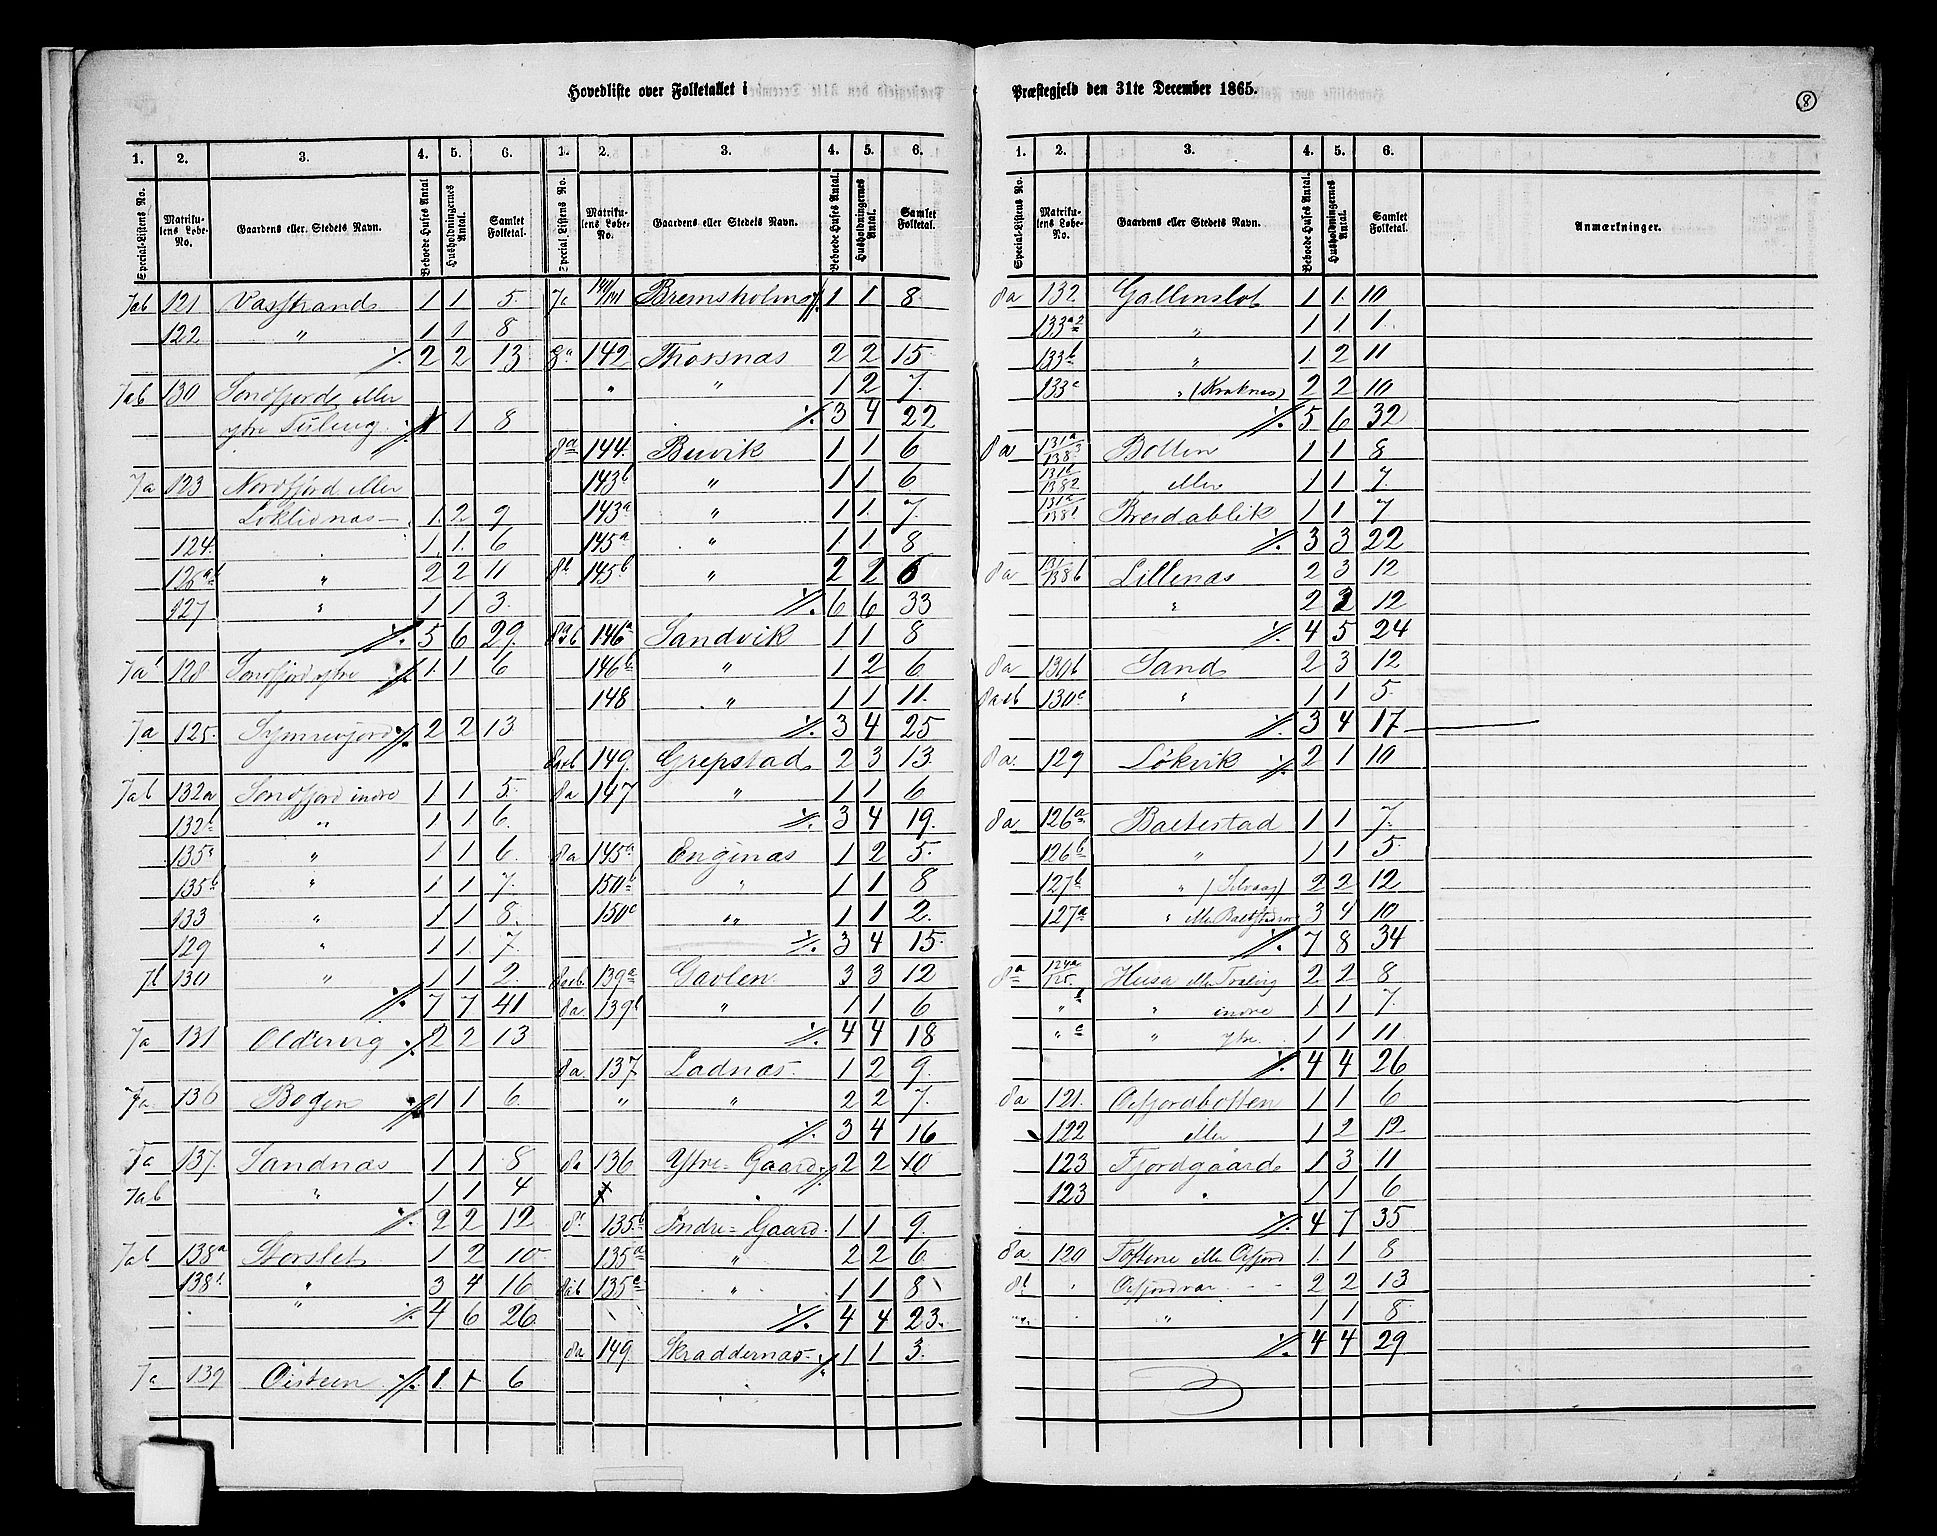 Hovedliste over Folketallet i
Præstegjeld den 31te December 1865.
8
1. 2. 3. 4. 5. 6. 1. 2. 3. 4. 5. 6.
Special-Listens No. Matrikulens Løbe-No. Gaardens eller Stedets Navn. Beboede Huses Antal Husholdningernes Antal. Samlet Folketal. Special Listens No. Matrikulens Løbe-No. Gaardens eller Stedets Navn. Beboede Huses Antal. Husholdningernes Antal. Samlet Folketal.
7ab 121 Vasstrand 1 1 5.
122 " 1 1 8
⁒ 2 2 13
7ab 130 Sørfjord eller
ytre Tuling ⁒ 1 1 8
7a 123 Nordfjord eller
Løklidnæs 1. 2. 9
124. 1. 1. 6
126ab " 2 2 11
127 " 1 1 3.
⁒ 5 6 29.
7a 128 Sørfjord ytre ⁒ 1 1 6
7a 125. ⁒ 2 2 13
7ab 132a Sørfjord indre 1 1 5.
132b " 1 1 6.
135a " 1 1 6.
135b " 1 1 7.
133 " 1 1 8.
129 " 1 1 7.
7b 130 " 1 1 2.
⁒ 7 7 41
7a 131 Oldervig ⁒ 2 2 13
7a. 136 Bogen ⁒ 1 1 6.
7a 137. Sandnæs 1 1 8
7ab " 1 1 4
⁒ 2 2 12
7ab 138a Storslet 1 2 10
138b " 3 4 16
" ⁒ 4 6 26
7a 139 Oisteen ⁒ 1. 1 6
Bremsholm ⁒ 1 1 8
8a 142 Thorsnæs 2 2 15.
" " 1 2 7.
⁒ 3 4 22
8a 144. Buvik 1 1 6
143b " 1 1 6
143a " 1 1. 7.
145a " 1 1 8
8b 145b " 2 2 6
⁒ 6 6 33
8ab 146a Sandvik 1 1 8
146b " 1 2 6
148 " 1 1 11.
⁒ 3 4 25
8ab 149. Grepstad 2 3 13
8a 147 " 1 1 6
⁒ 3 4 19.
8a 145a Enginæs 1 2 5.
150b " 1 1 8
150c " 1 1 2.
⁒ 3 4 15.
8ab. 139a Gavlen 3 3 12
8a. 139b " 1 1 6
⁒ 4 4 18
8a. 137 Ladnæs 1 2 9.
" " 2 2 7.
⁒ 3 4 16
8a 136 Ytre-Gaard ⁒ 2 2 10
135b Indre-Gaard. 1 1 9.
135a " 2 2 6
8ab 135c " 1 1 8
⁒ 4 4 23.
8a 149. Skraddernæs ⁒ 1 1 3.
1. 2. 3. 4. 5. 6.
Special-Listens No. Matrikulens Løbe-No. Gaardens eller Stedets Navn. Beboede Huses Antal. Husholdningernes Antal. Samlet Folketal. Anmærkninger.
8a 132 Gallenslot 1 1. 10
133a2 " 1 1 1.
133b " 1 2 11
133c " (Kraknæs) 2 2 10
⁒ 5 6 32
8a 131a/138 3 Botten 1 1 8
131a/138 2 eller 1 1 7.
131a/138 1 Breidablik 1 1 7
⁒ 3 3 22
8a 131/138b Lillenæs 2 3 12
" 2 2 12
⁒ 4 5 24
8a 130b Sand 2 3 12
8ab 130c " 1 1 5.
⁒ 3 4 17
8a. 129 Løkvik ⁒ 2 1 10
8a 126a Baltestad 1 1 7.
126b " 1 1 5
127b " (Selvaag) 2 2 12
127a " 3 4 10
⁒ 7 8 34
8a 124a/125. Husa eller Traling 2 2 8
" b " indre 1 1 7
" c " ytre. 1 1 11.
⁒ 4 4 26
8a 121. Oefjordbotten 1 1 6
122 eller 1 2 12
123 Fjordgaard 1 3 11
123 " 1 1 6
⁒ 4 7 35
8a 120 Toftene eller Oefjord 1. 1 8
8b Oefjordvær 2 2 13
" 1 1 8
⁒ 4 4 29